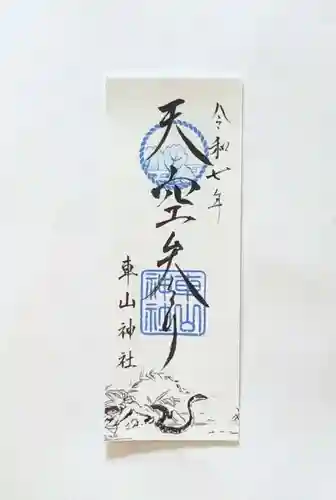 令和七年
天空参り
車山神社
車山
神社